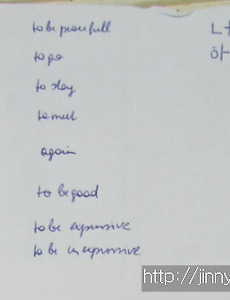 to be peacefull
to go
to stay
to meet
again
to be good
to be expensive
to be inexpensive
http://jinny